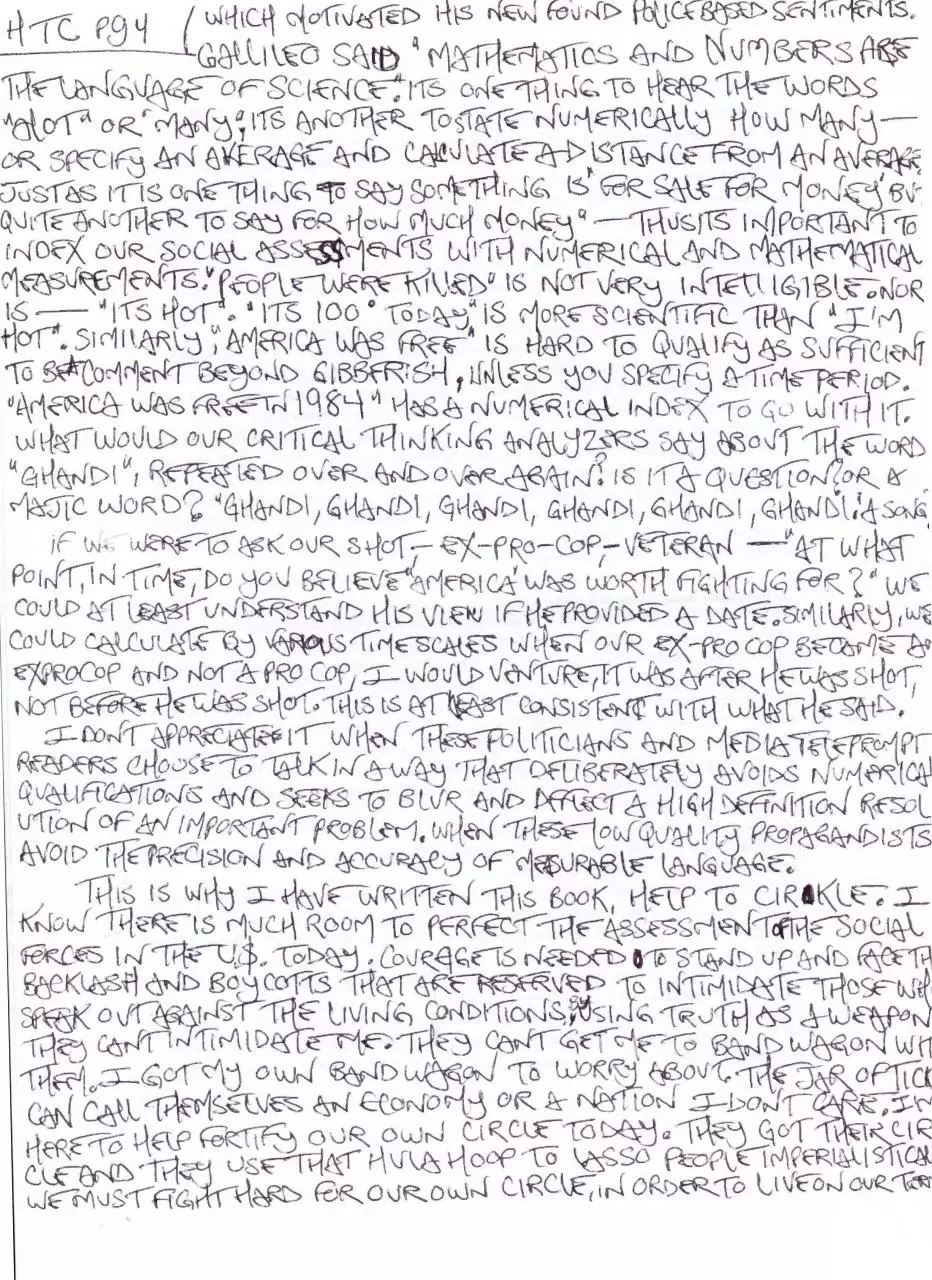 HTC Pg4
WHICH MOTIVATED HIS NEW FOUND POLICE BASED SENTIMENTS.
GALLILEO SAID "MATHEMATICS AND NUMBERS ARE
THE LANGUAGE OF SCIENCE". ITS ONE THING TO HEAR THE WORDS
"ALOT" OR "MANY", ITS ANOTHER TO STATE NUMERICALLY HOW MANY —
OR SPECIFY AN AVERAGE AND CALCULATE A DISTANCE FROM AN AVERAGE
JUST AS IT IS ONE THING TO SAY SOMETHING IS "FOR SALE FOR MONEY" BU
QUITE ANOTHER TO SAY FOR HOW MUCH MONEY" — THUS ITS IMPORTANT TO
INDEX OUR SOCIAL ASSESSMENTS WITH NUMERICAL AND MATHEMATICAL
MEASUREMENTS. "PEOPLE WERE KILLED" IS NOT VERY INTELLIGIBLE. NOR
IS — "ITS HOT". "ITS 100° TODAY" IS MORE SCIENTIFIC THAN "I'M
HOT". SIMILARLY, "AMERICA WAS FREE" IS HARD TO QUALIFY AS SUFFICIENT
TO BE A COMMENT BEYOND GIBBERISH, UNLESS YOU SPECIFY A TIME PERIOD.
"AMERICA WAS FREE IN 1984" HAS A NUMERICAL INDEX TO GO WITH IT.
WHAT WOULD OUR CRITICAL THINKING ANALYZERS SAY ABOUT THE WORD
"GHANDI", REPEATED OVER AND OVER AGAIN? IS IT A QUESTION? OR A
MAJIC WORD? "GHANDI, GHANDI, GHANDI, GHANDI, GHANDI, GHANDI". A SONG
IF WE WERE TO ASK OUR SHOT,-EX-PRO-COP,-VETERAN — "AT WHAT
POINT, IN TIME, DO YOU BELIEVE "AMERICA" WAS WORTH FIGHTING FOR?" WE
COULD AT LEAST UNDERSTAND HIS VIEW IF HE PROVIDED A DATE. SIMILARLY, WE
COULD CALCULATE BY VARIOUS TIME SCALES WHEN OUR EX-PRO COP BECAME A
EXPROCOP AND NOT A PRO COP, I WOULD VENTURE, IT WAS AFTER HE WAS SHOT,
NOT BEFORE HE WAS SHOT. THIS IS AT LEAST CONSISTENT WITH WHAT HE SAID.
I DONT APPRECIATE IT WHEN THESE POLITICIANS AND MEDIA TELEPROMPT
READERS CHOOSE TO TALK IN A WAY THAT DELIBERATELY AVOIDS NUMERICA
QUALIFICATIONS AND SEEKS TO BLUR AND DEFLECT A HIGH DEFINITION RESOL
UTION OF AN IMPORTANT PROBLEM. WHEN THESE LOW QUALITY PROPAGANDISTS
AVOID THE PRECISION AND ACCURACY OF MESURABLE LANGUAGE.
THIS IS WHY I HAVE WRITTEN THIS BOOK, HELP TO CIRKLE. I
KNOW THERE IS MUCH ROOM TO PERFECT THE ASSESSMENT OF THE SOCIAL
FORCES IN THE U.$. TODAY. COURAGE IS NEEDED TO STAND UP AND FACE TH
BACKLASH AND BOYCOTTS THAT ARE RESERVED TO INTIMIDATE THOSE WH
SPEAK OUT AGAINST THE LIVING CONDITIONS, BY USING TRUTH AS A WEAPON
THEY CANT INTIMIDATE ME. THEY CANT GET ME TO BAND WAGON WIT
THEM. I GOT MY OWN BAND WAGON TO WORRY ABOUT. THE JAR OF TICK
CAN CALL THEMSELVES AN ECONOMY OR A NATION I DONT CARE. IM
HERE TO HELP FORTIFY OUR OWN CIRCLE TODAY. THEY GOT THEIR CIR
CLE AND THEY USE THAT HULA HOOP TO LASSO PEOPLE IMPERIALISTICAL
WE MUST FIGHT HARD FOR OUR OWN CIRCLE, IN ORDER TO LIVE ON OUR TERM